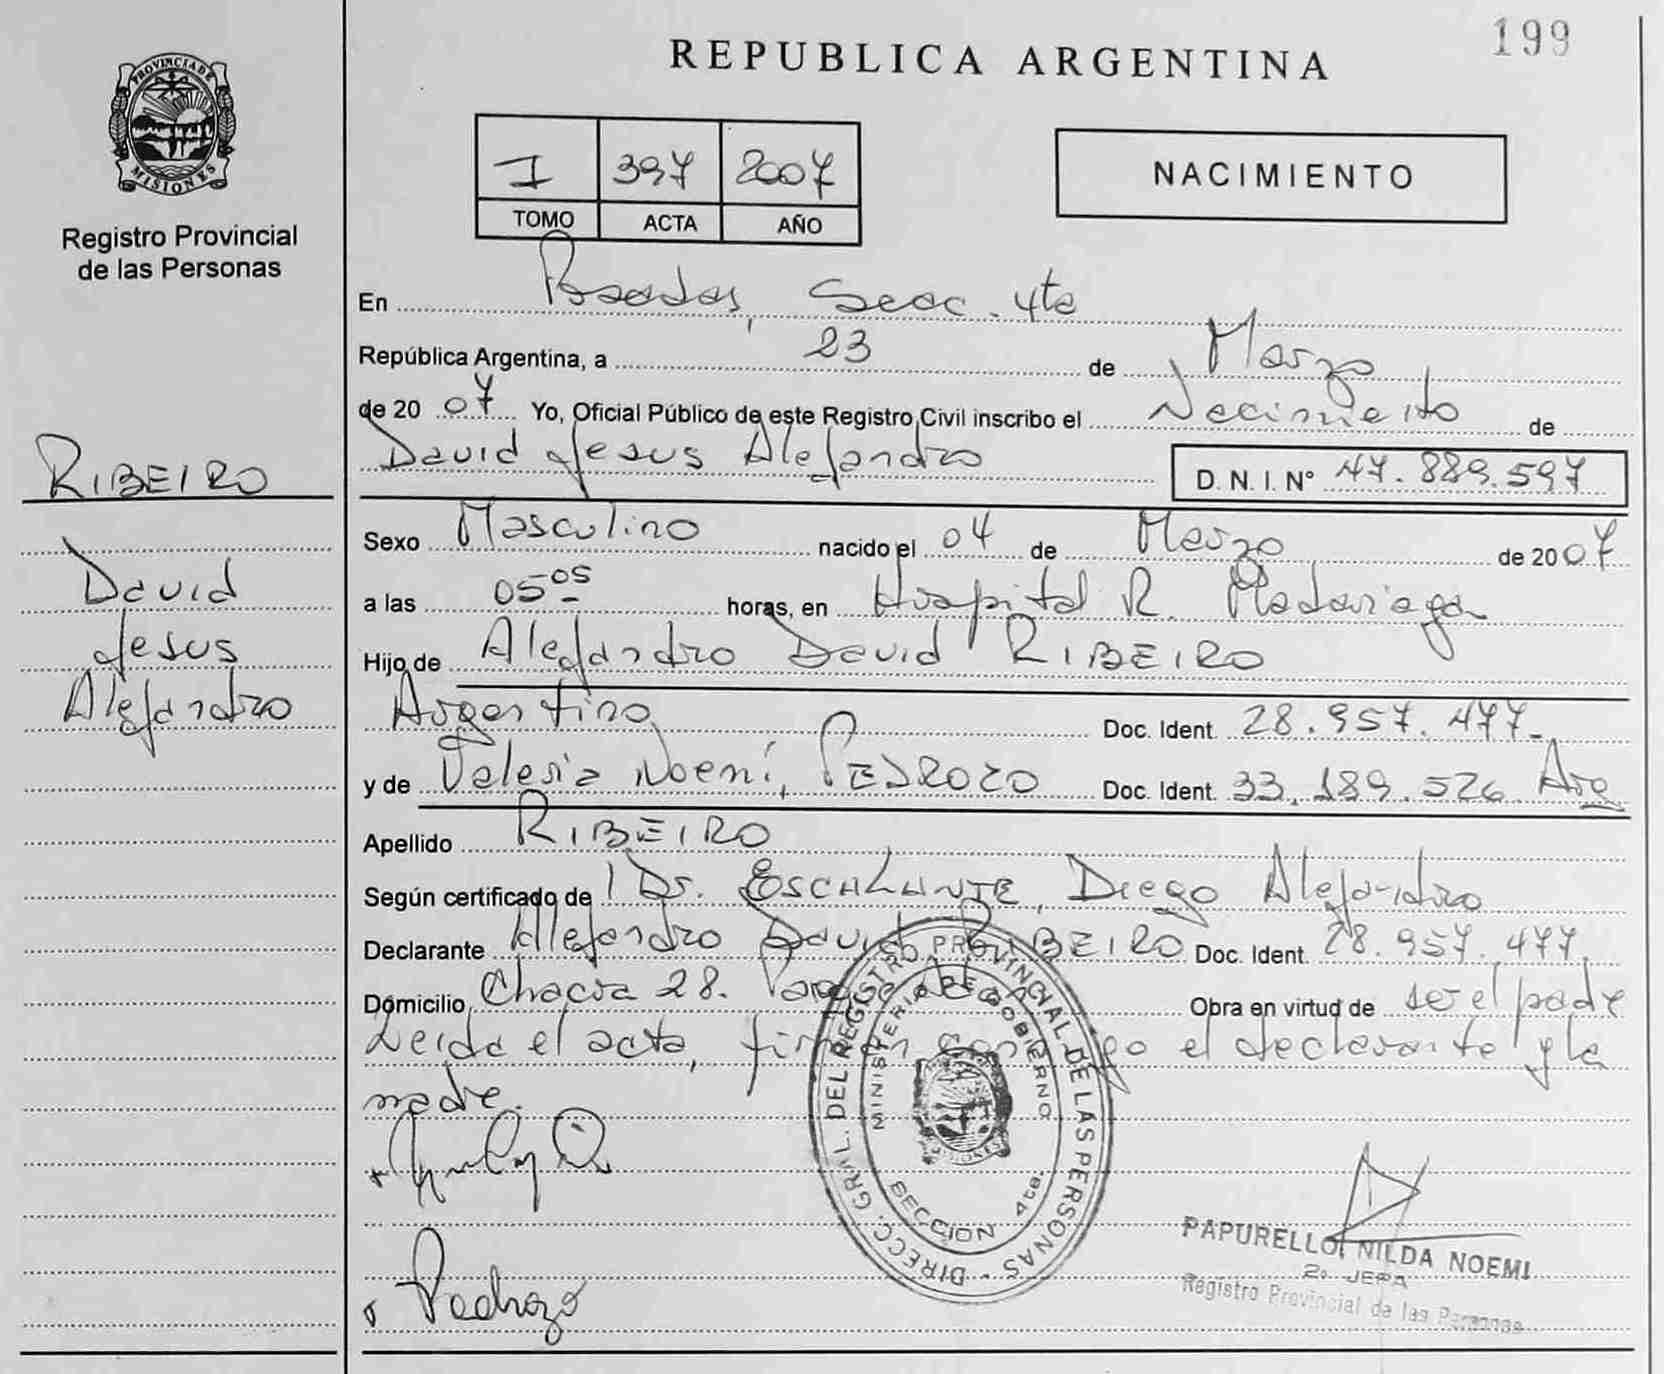 199
REPUBLICA ARGENTINA
PROVINCIA DE
MISIONES
Registro Provincial
de las Personas
1 397 2007
TOMO ACTA AÑO
NACIMIENTO
En Posadas, Secc. 4ta
República Argentina, a 23 de Marzo
de 2007 Yo, Oficial Público de este Registro Civil inscribo el Nacimiento de
David Jesus Alejandro D. N. I. N° 47.889.597
RIBEIRO
David
Jesus
Alejandro
Sexo Masculino nacido el 04 de Marzo de 2007
a las 05 05 horas, en Hospital R. Madariaga
Hijo de Alejandro David RIBEIRO
Argentino Doc. Ident. 28.957.477-
y de Valeria Noemí, PEDROZO Doc. Ident. 33.189.526 Arg
Apellido RIBEIRO
Según certificado de Dr. ESCALANTE, Diego Alejandro
Declarante Alejandro David RIBEIRO Doc. Ident. 28.957.477
Domicilio Chacra 28. Obra en virtud de ser el padre
Leida el acta, firman conmigo el declarante y la
madre.
DIRECC. GRAL. DEL REGISTRO PROVINCIAL DE LAS PERSONAS -
MINISTERIO DE GOBIERNO
MISIONES
SECCION 4ta.
Pedrozo
PAPURELLO NILDA NOEMI
2° JEFA
Registro Provincial de las Personas